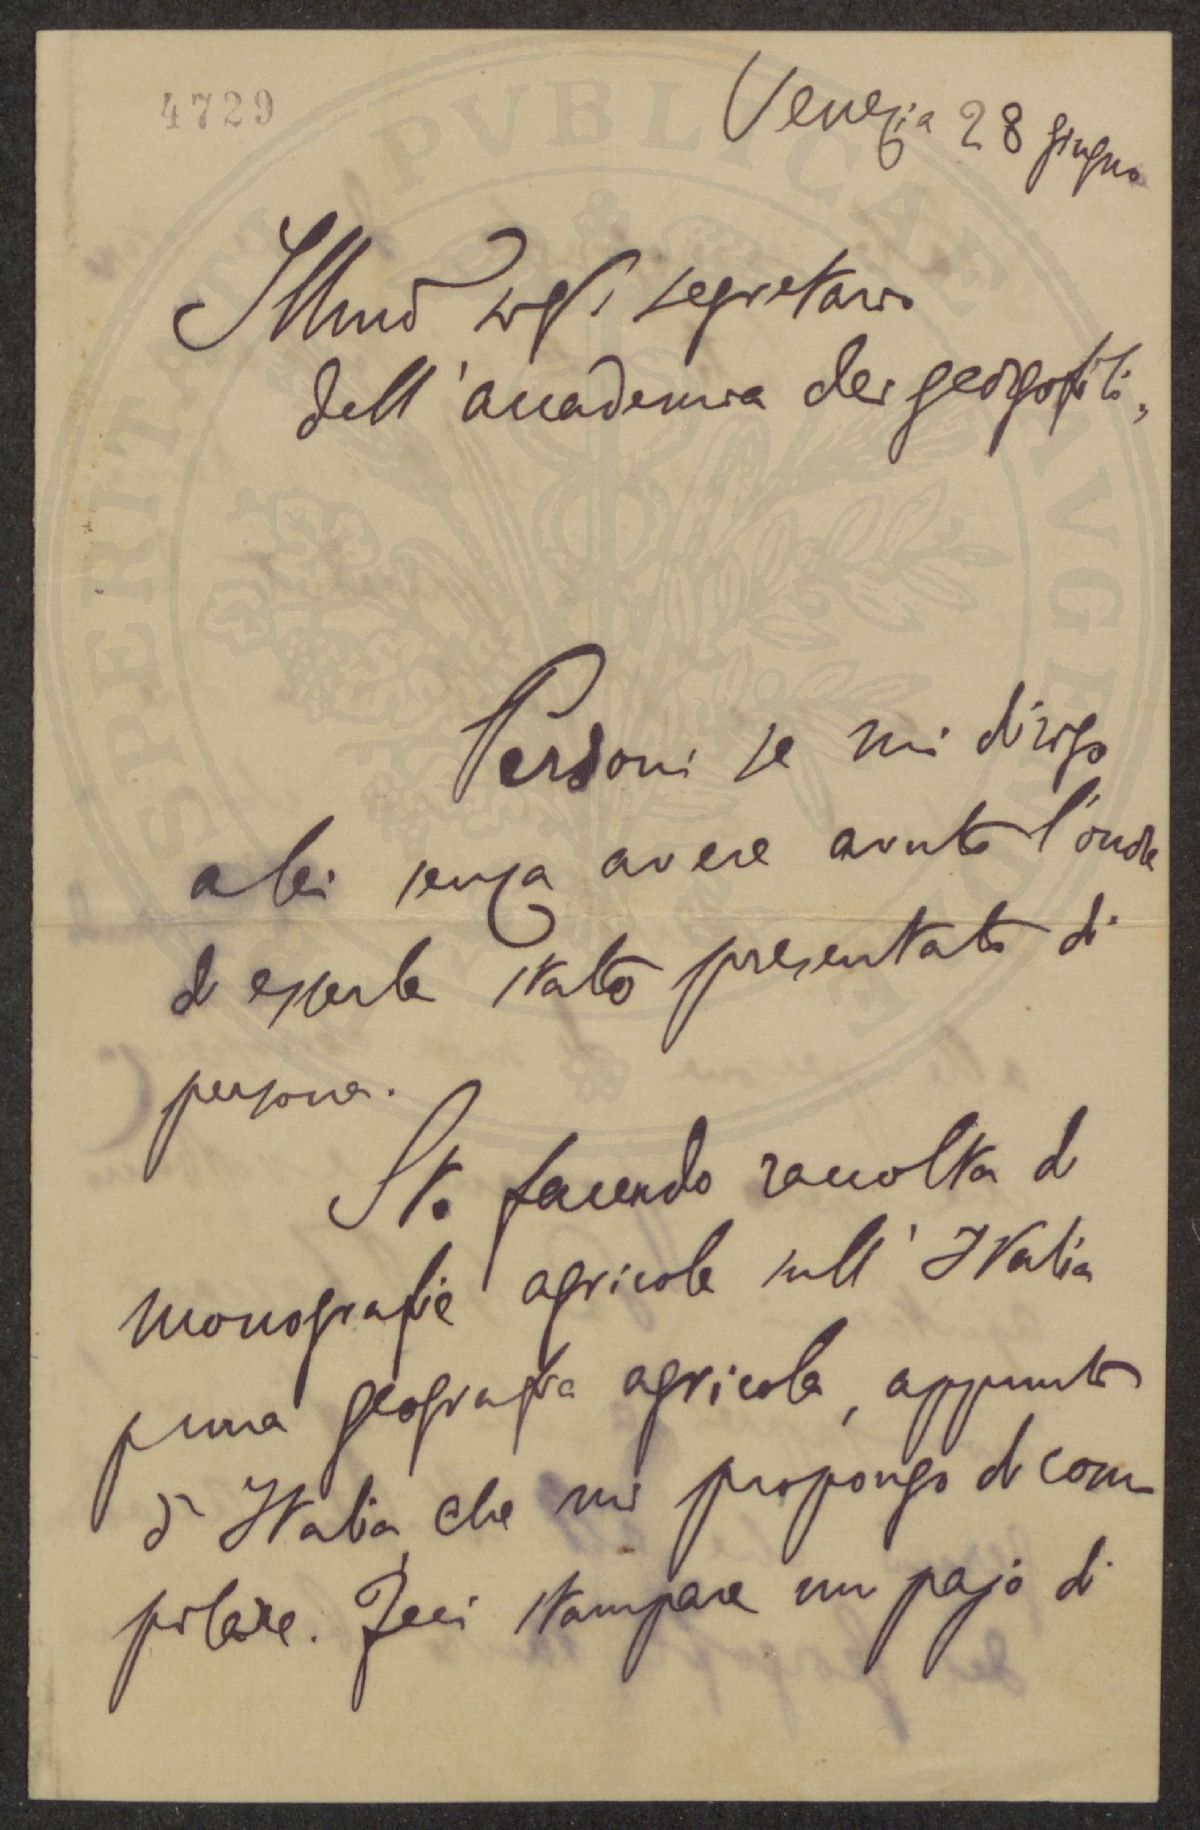 4729
Venezia 28 giugno
Illmo sigr segretario
dell'accademia dei georgofili,
Perdoni se mi dirigo
a lei senza avere avuto l'onore
d esserle stato presentato di
persona.
Sto facendo raccolta d
monografie agricole sull' Italia
p una geografia agricola, appunto
d' Italia che mi propongo d com
pilare. Feci stampare un pajo di
PROSPERITATI PVBLICAE AVGENDAE